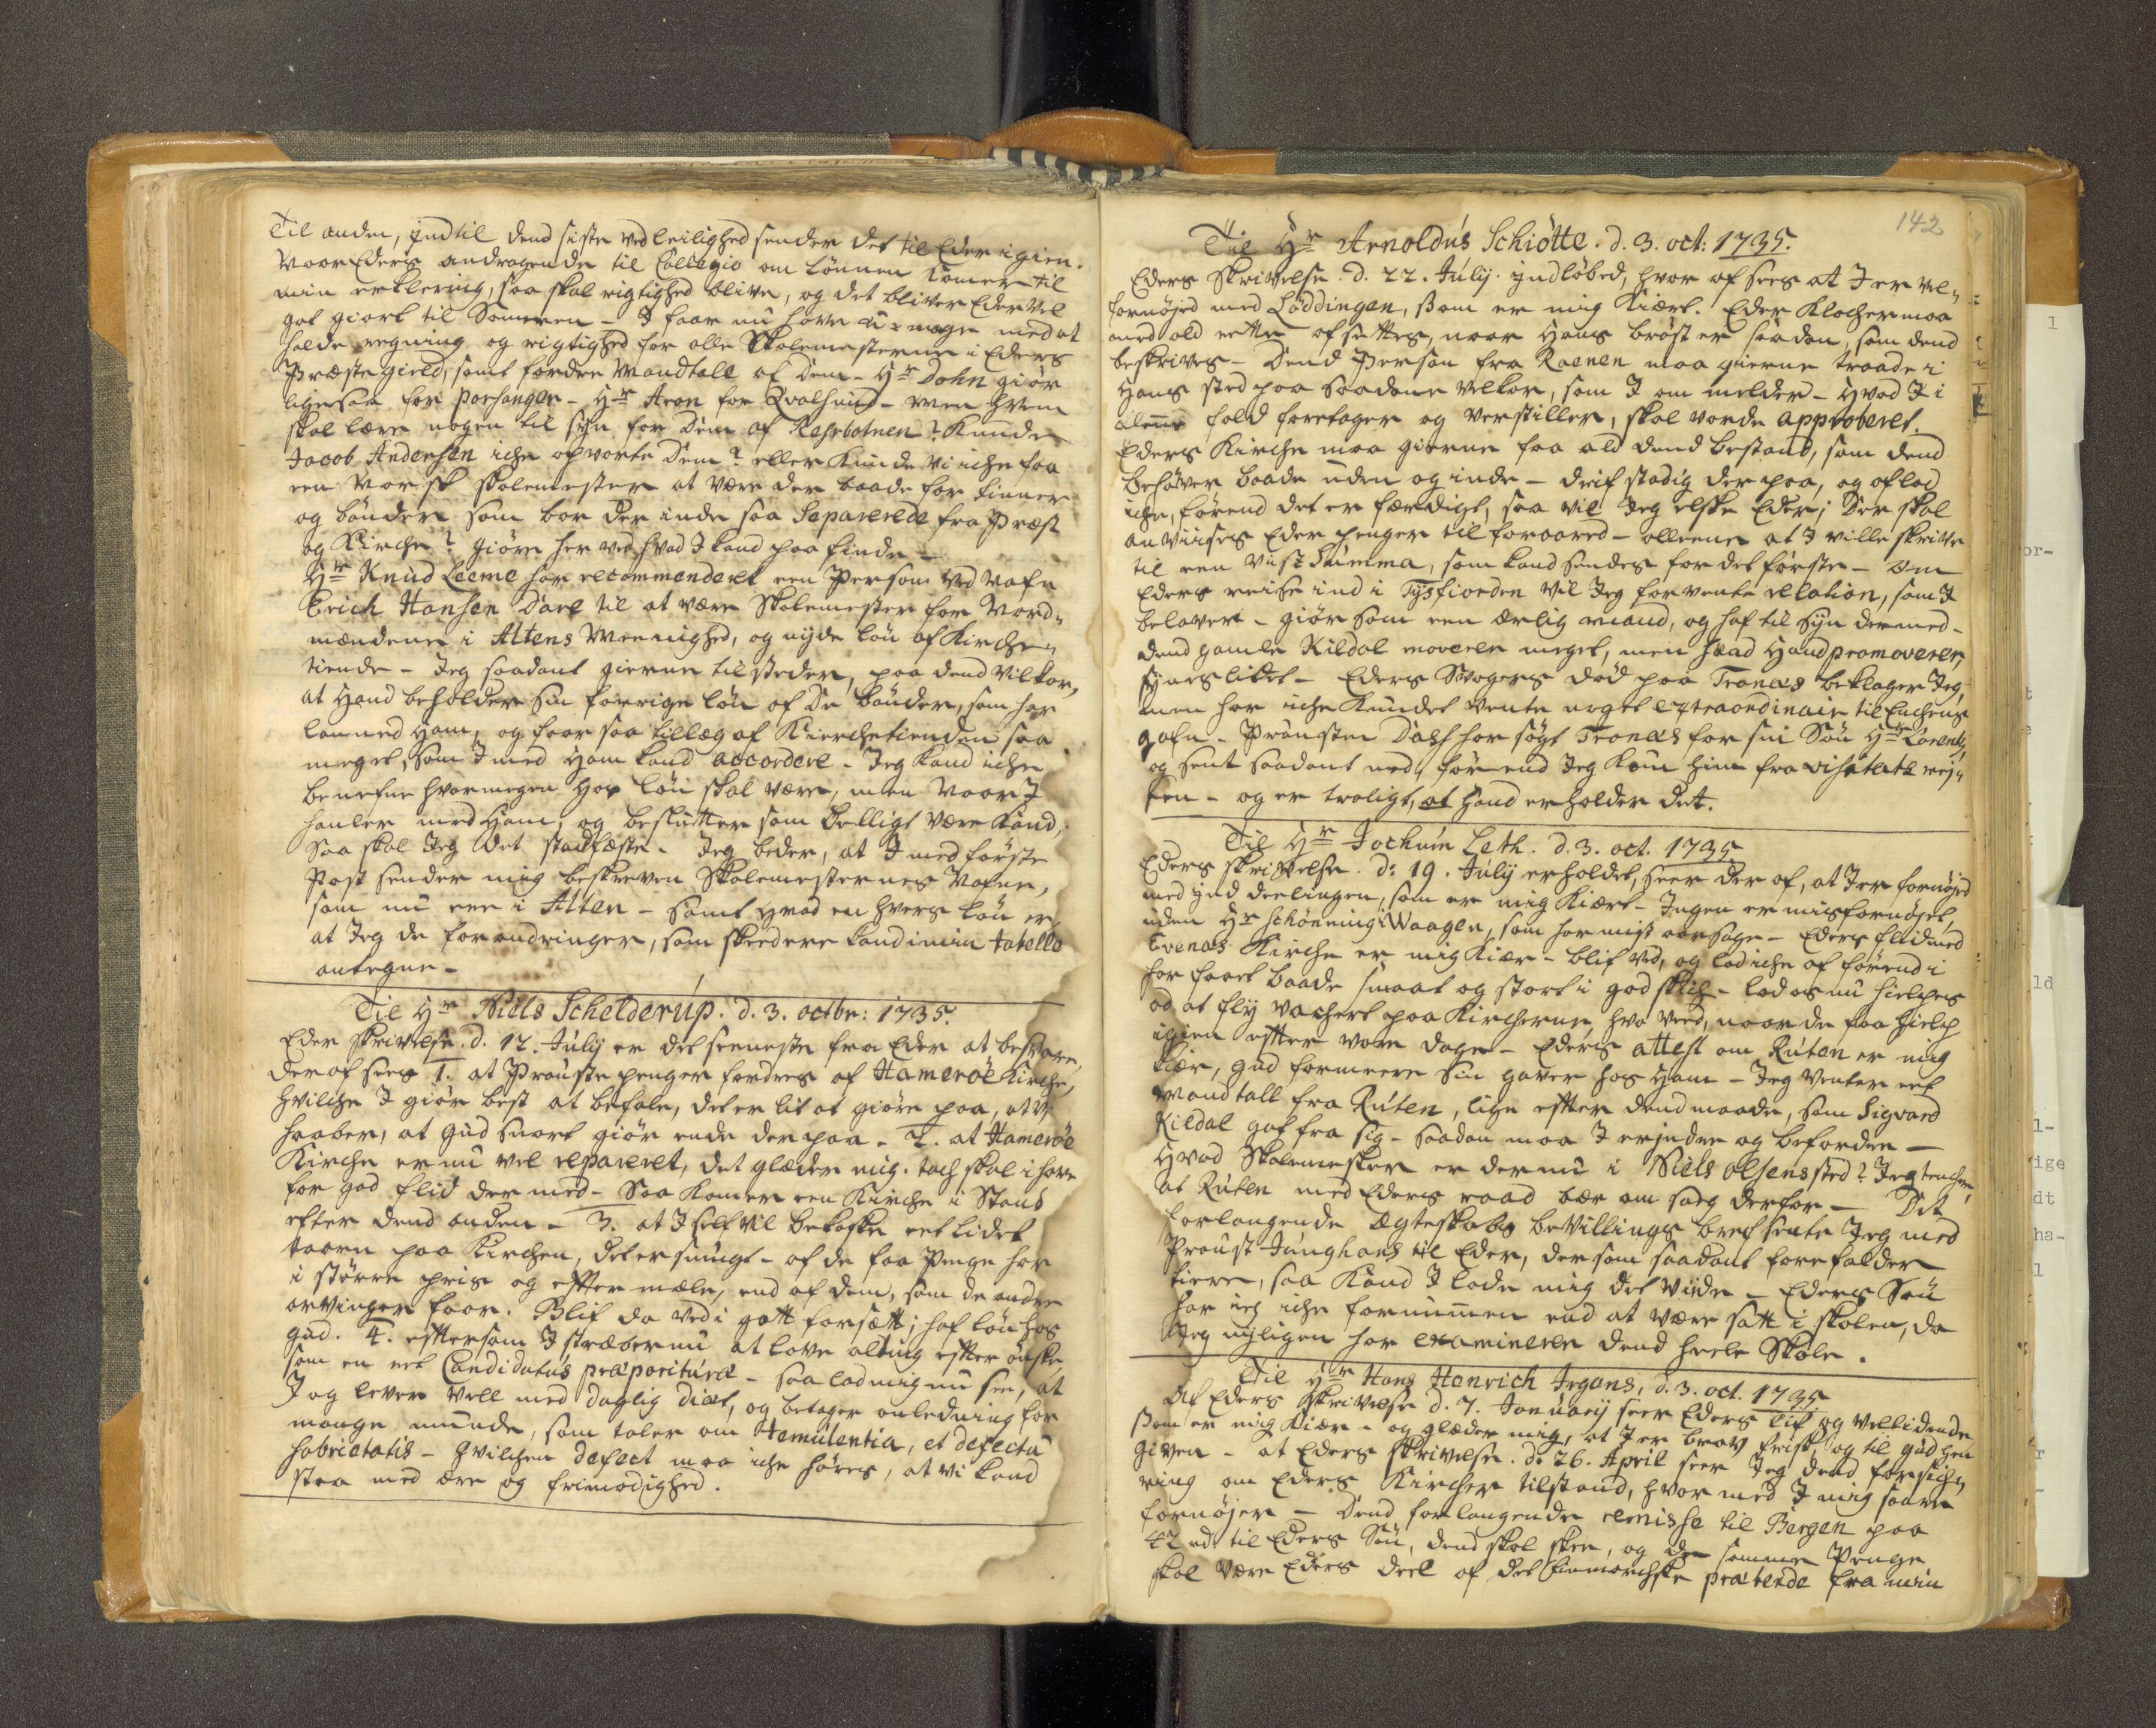 Til anden, indtil dend siste ved leilighed sender det til Eder igien.
Naar Eders andragende til Collegio om Lönnen komer til
min erklering, saa skal rigtighed blive, og det bliver Eder vel
got giort til Someren - I faar nu have u-mage med at
holde regning og rigtighed for alle Skolemesterne i Eders
Præstegield, samt fordre Mandtall af dem - Hr Dohn giör
ligesaa for Porsanger - Hr Aron for Qvalsund - Men hvem
skal lære nogen til syn for dem af Refsbotnen? Kunde
Jacob Andersen iche opvarte dem? eller Kunde vi iche faa
een Norsk skolemester at være der baade for finner
og bönder som bor der inde saa Separerede fra Præst
og Kirche? giörer her ved hvad I kand paa finde -
Hr Knud Leeme har recommenderet een Person ved Nafn
Erich Hansen Dare til at være Skolemester for Nord-
mændene i Altens Meenighed, og nyde lön af Kirche-
tiende - Jeg saadant gierne tilsteder, paa dend vilkor,
at hand beholder sin forrige lön af de bönder, som har
lönned ham, og faar saa tillæg af Kierchetienden saa
meget, som I med ham kand accordere - Jeg kand iche
benefne hvormegen hos lön skal være, men naar I
handler med ham, og beslutter som billigt være kand,
Saa skal Jeg det stadfæste. Jeg beder, at I med förste
Post sender mig beskreven Skolemesternes Nafne,
som nu ere i Alten - samt hvad en hvers lön er,
at Jeg de forandringer, som skeed ere kand i min tabelle
antegne -
Til Hr Niels Schelderup. d. 3. octbr: 1735.
Eder skrivelse d. 12. July er det seeneste fra Eder at besvare,
der af sees 1. at Prouste penger fordres af Hameröe Kirche,
hvilche I giör best at befale, det er lit at giöre paa, at vi
haaber, at Gud snart giör ende der paa - 2. at Hameröe
Kirche er nu vel repareret, det glæder mig. tach skal i have
for god flid der med - Saa Komer een Kirche i Stand
efter dend anden - 3. at I self vil bekoste eet lidet
taarn paa Kirchen, det er smugt - af de faa Penge har
i större pris og efter mæle, end af dem, som de andre
arvinger faar. Blif da ved i gott forsætt; haf lön hos
gud. 4. effterson I stræber nu at lave alting effter önske
som en ret Candidatus præposituræ - saa lad mig nu see, at
I og lever vell med daglig diæt, og betager anledning for
mange munde, som taler om temulentia, et defectu
sobrietatis - hvilchen defect maa iche höres, at vi kand
staa med ære og frimodighed.
142
Til Hr Arnoldus Schiötte. d. 3. oct: 1735.
Eders Skrivelse d. 22. July indlöbed, hvor af sees at I er vel-
fornöjed med Löddingen, som er mig Kiært. Eder Klocher maa
med ald rette afsettes, naar hans bröst er saadan, som dend
beskrives - Dend Person fra Ranen maa gierne træde i
hans sted paa saadane velkor, som I om melder - Hvad I i
fald foretager og verstiller, skal vorde approberet.
Eders Kirche maa gierne faa ald dend bestand, som dend
behöver baade uden og inde - drif stadig der paa, og aflad
iche, förend det er færdigt, saa vil Jeg elske Eder; der skal
anviises Eder penger til forraad - alleene at I ville skrive
til een vist Summa, som kand sendes for det förste - om
Eders reise ind i Tysfiorden vil Jeg forvente relation, som I
belover - giör som een ærlig mand, og haf til syn dermed -
dend gamle Kildal moverer meget, men hvad hand promoverer,
synes lidet - Eders Svogers död paa Tronæs beklager Jeg,
men har iche kundet vente noget extraordinair til Enchens
gafn - Prousten Dass har sögt Tronæs for sin Sön Hr Lorentz,
og sent saadant ned, för end Jeg kom him fra visitatz rej-
sen - og er troligt, at hand erholder det.
Til Hr Jochum Leth. d. 3. oct. 1735
Eders skrivelse d: 19. July erholdet, seer der af, at I er fornöjed
med ind deelingen, som er mig Kiært - Ingen er misfornöjet,
uden Hr Schönning i Waagen, som har mist aarsage - Eders flid med
Evenæs Kirche er mig Kiær - blif ved, og lad iche af förend i
har faaet baade smaat og stort i god skich - lad os nu hielpes
ad at fly vachert paa Kircherne, hvo veed, naar de faa hielp
igien effter vore dage - Eders attest om Ruten er mig
kiær, gud formeere sin gaver hos ham - Jeg venter eet
Mandtall fra Ruten, lige effter dend maade, som Sigvard
Kildal gaf fra sig - saadan maa I erindre og befordre -
Hvad Skolemester er der nu i Niels Olsens sted? Jeg tencher,
at Ruten med Eders raad bær om sorg derfor - Det
forlangende Ægteskabs bevillings bref sente Jeg med
Proust Junghans til Eder, der som saadant forefalder
tiere, saa kand I lade mig det viide - Eders Sön
har jeg iche fornummen end at være satt i skolen, da
Jeg nyligen har examineret dend heele Skole.
Til Hr Hans Henrich Irgans, d. 3. oct. 1735
Af Eders skrivelse d. 7. January seer Eders lif og vellidende
som er mig Kiær - og glæder mig, at I er brav frisk, og til gud hen
given - at Eders skrivelse d: 26. April seer Jeg dend forsich-
ring om Eders Kircher tilstand, hvor med I mig saare
fornöjer - Dend forlangende remisse til Bergen paa
42 rd til Eders Sön, dend skal skee, og de samme Penge
skal være Eders deel af det finmarchske præbende fra min